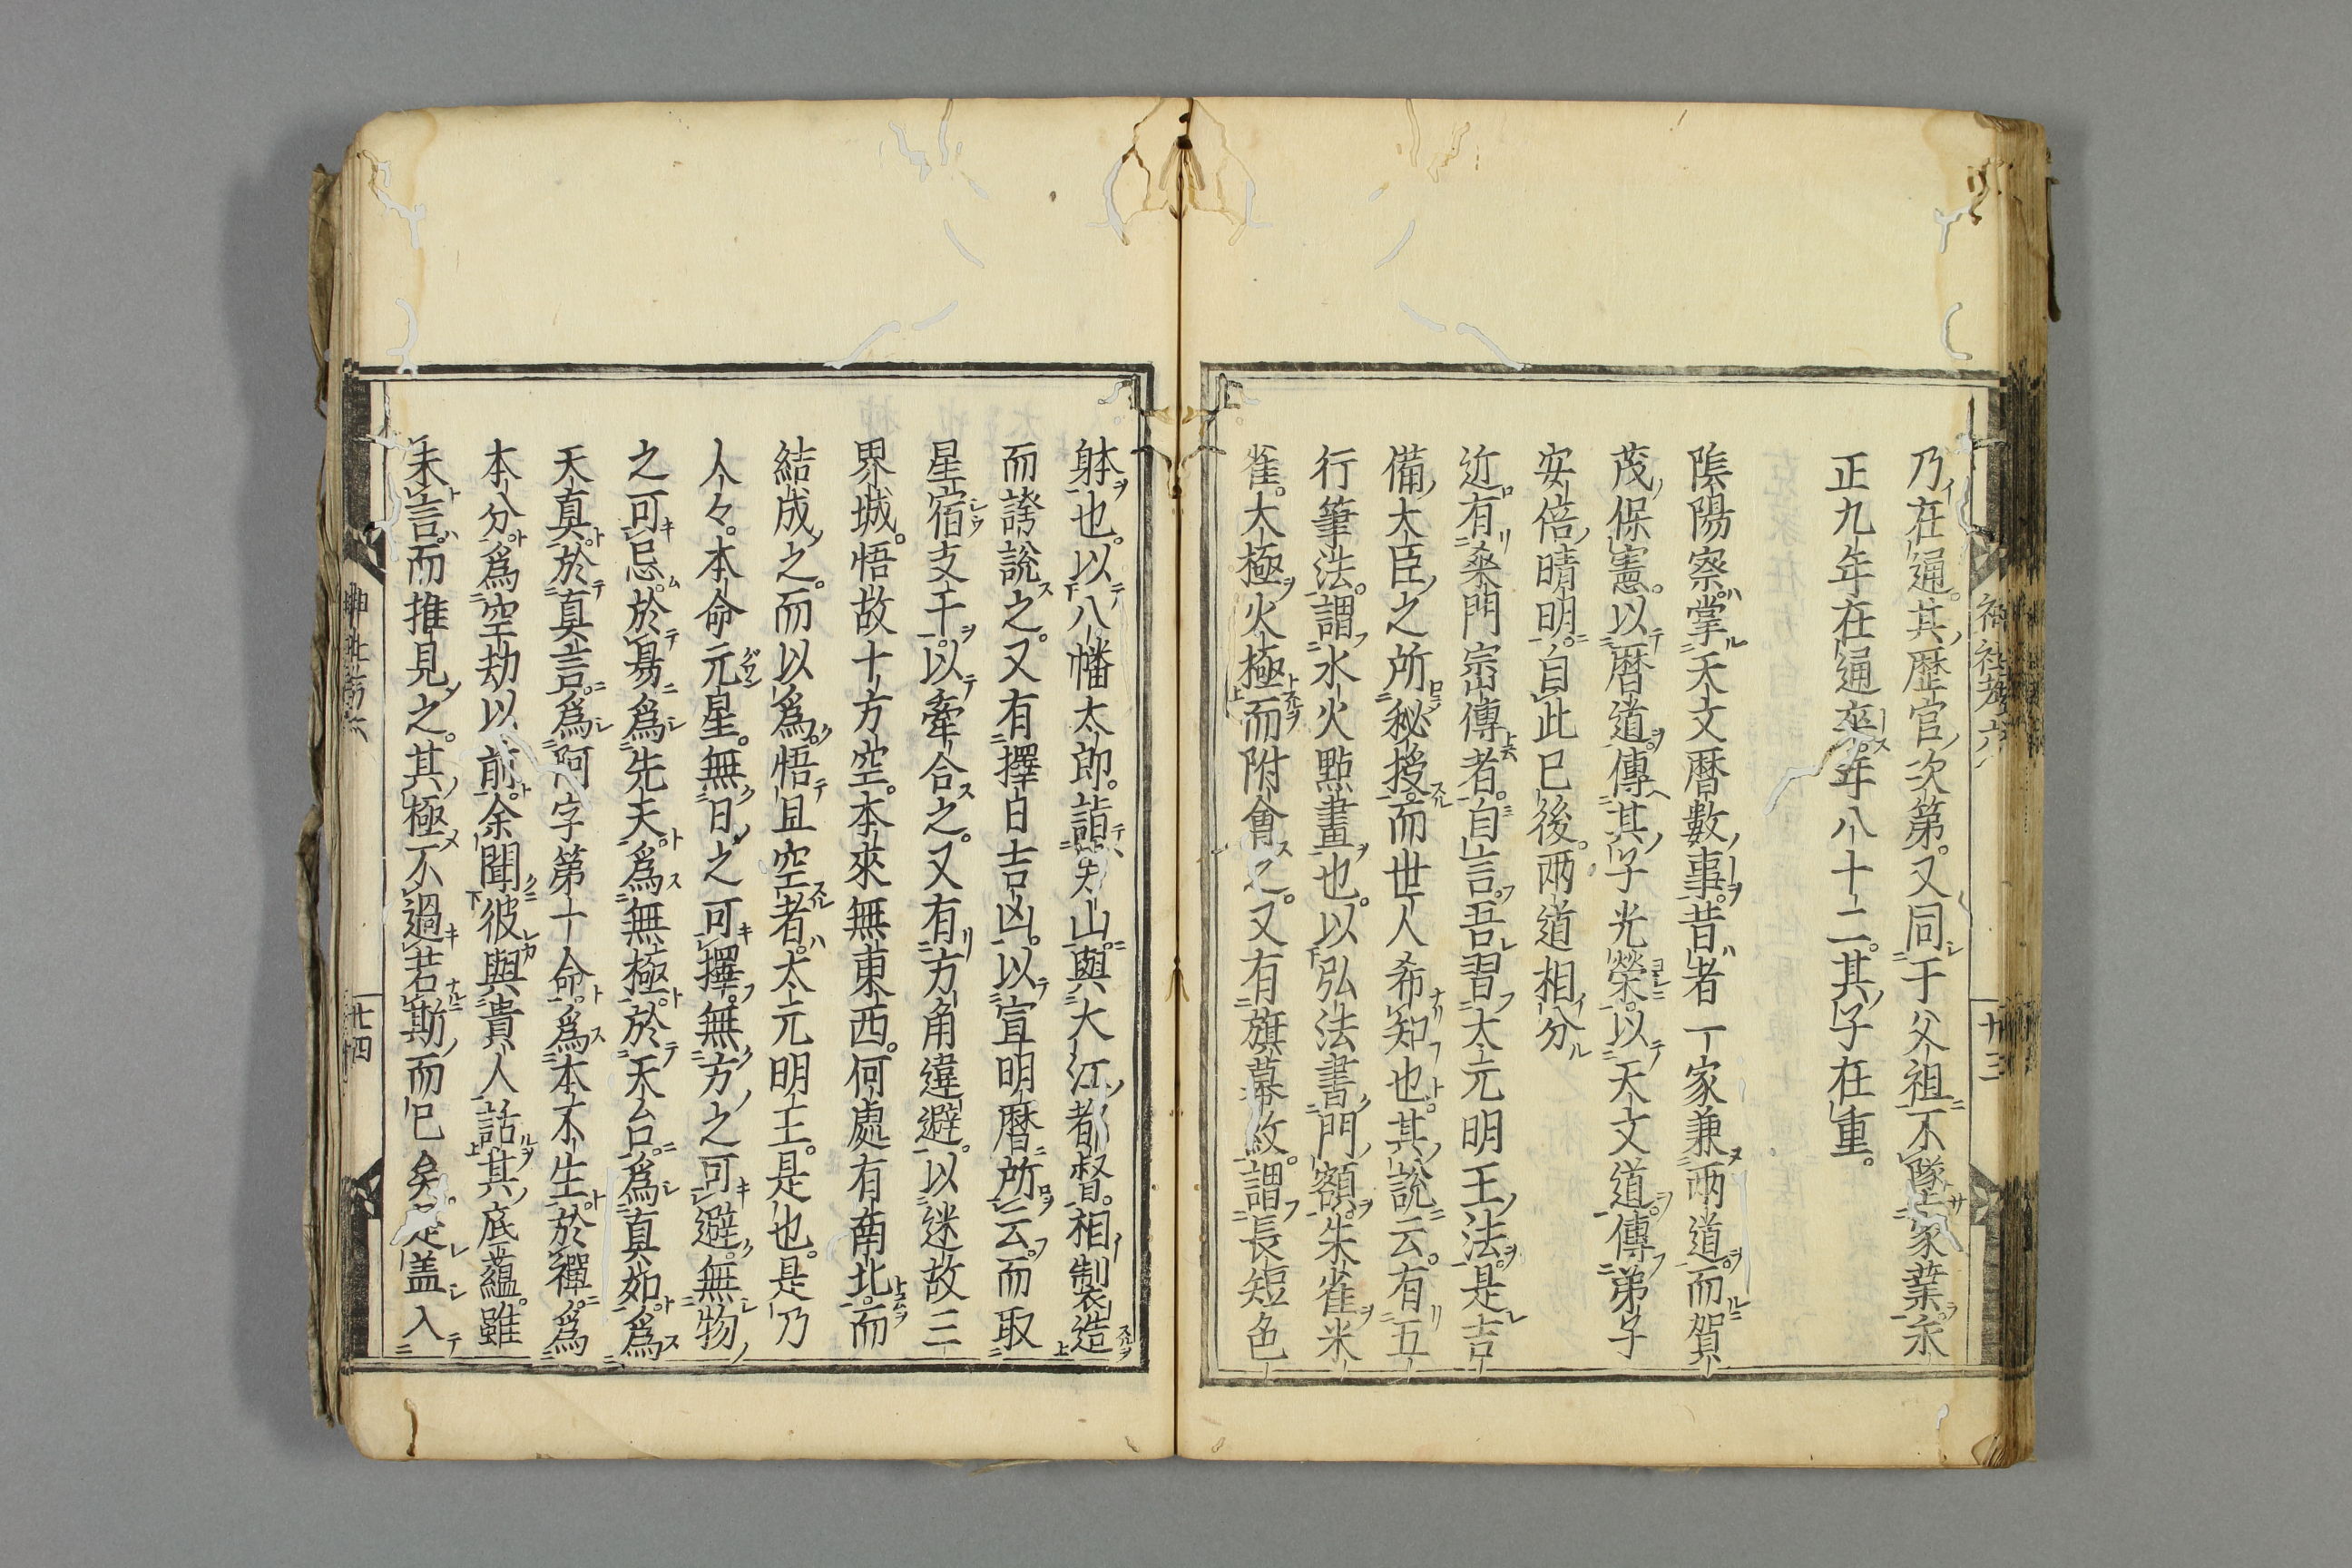 乃在通其歷官次第又同于父祖不墜家業永
正九年在通卒年八十二其子在重
陰陽寮掌天文曆數事昔者一家兼兩道而賀
茂保憲以曆道傳其子光榮以天文道傳弟子
安倍晴明自此已後兩道相分
近有桑門宗傳者自言吾習太元明王法是吉
備大臣之所秘授而世人希知也其說云有五
行筆法謂水火點畫也以弘法書門額朱雀米
雀大極火極而附會之又有旗幕紋謂長短色
躰也以八幡太郎詣山與大江都督相制製造
而誇說之又有擇日吉凶以宣明曆所云而取
星宿支干以牽合之又有方角違避以迷故三
界城悟故十方空本來無東西何處有南北而
結成之而以爲悟且空者太元明王是也是乃
人々本命元星無日之可擇無方之可避無物
之可忌於昜爲先天爲無極於天台爲真如爲
天真於真言爲阿字第十命爲本不生於禪爲
本分爲空劫以前余聞彼與貴人話其底蘊雖
未言而推見之其極不過若斯而已矣是盖入
神社考六
廿三
廿四